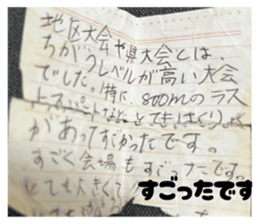 地区大会や県大会とは、
ちがうレベルが高い大会
でした。特に、800mのラス
トスパートなど、とても
があってすごかったです。
すごく会場もすごったです。
とても大きくて
すごったです